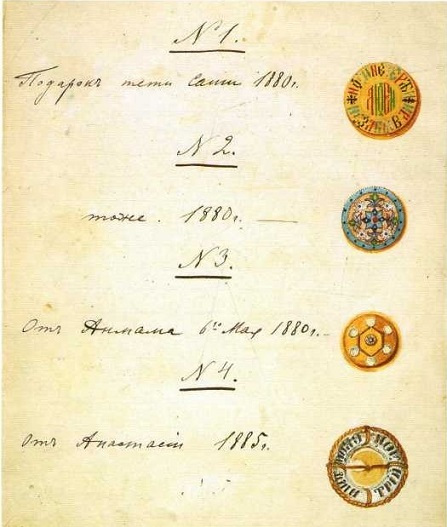 №1.
Подарокъ тети Саши 1880г.
№2.
тоже. 1880г. —
№3.
Отъ Анмама 6го Мая 1880г. –
№4.
Отъ Анастасіи 1885г.